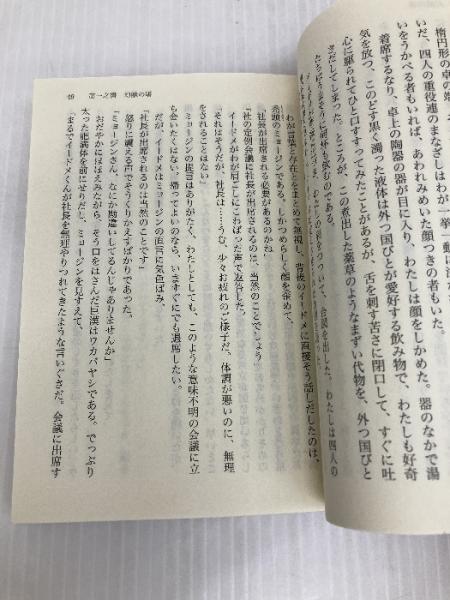 楕円形の卓の
いだ、四人の重役連のまなざしはわが一挙一動に注
いをうかべる者もいれば、あわれみめいた顔つきの者もいた。
着席するなり、卓上の陶器の器が目に入り、わたしは顔をしかめた。器のなかで湯
気を放つ、このどす黒く濁った液体は外つ国びとが愛好する飲み物で、わたしも好奇
心に駆られてひと口すすってみたことがあるが、舌を刺す苦さに閉口して、すぐに吐
きだしてしまった。ところが、この煮出した薬草のようなまずい代物を、外つ国びと
わたしは四人の
わが言葉と存在とをまとめて無視し、背後のイードメに直接そう話しだしたのは、
禿頭のミョージンである。しかつめらしく顔を歪めて、
「社長が出席される必要があるのかね」
「社の定例会議に社長が出席されるのは、当然のことでしょう」
イードメがわが肩ごしにこわばった声で返答した。
「それはそうだが、社長は……うむ、少々お疲れのご様子だ。体調が悪いのに、無理
をされることはない」
ミョージンの提言はありがたく、わたしとしても、このような意味不明の会議に立
ち会いたくはない。帰ってよいのなら、いますぐにでも退席したい。
だが、イードメはミョージンの直言に気色ばみ、
「社長が出席されるのは当然のことです」
怒りに震える声でそうくりかえすばかりであった。
「ミョージンさん、なにか勘違いしてるんじゃありませんか」
おだやかにほほえみながら、そう口をはさんだ巨漢はワカバヤシである。でっぷり
太った肥満体を前にせりだし、ミョージンを見すえて、
「まるでイードメくんが社長を無理やりつれてきたような言いぐさだ。会議に出席す